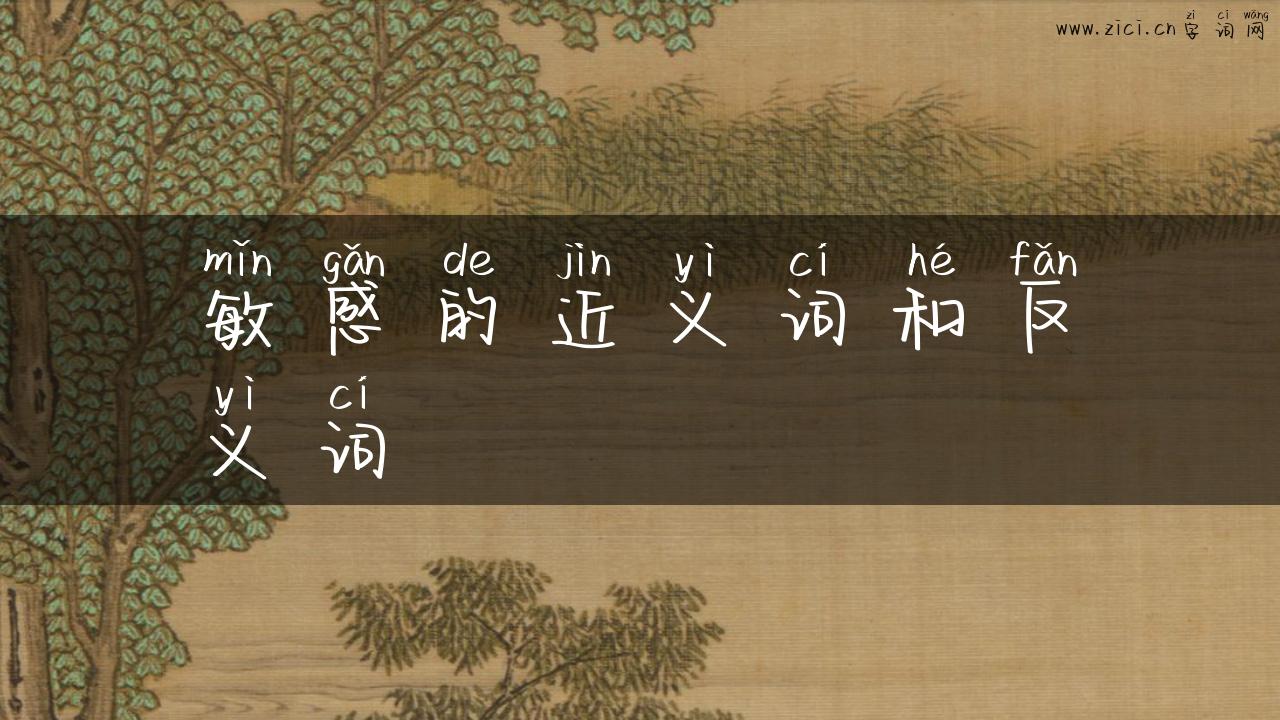 zì cí wǎng
www.zici.cn 字词网
mǐn gǎn de jìn yì cí hé fǎn
敏感的近义词和反
yì cí
义词